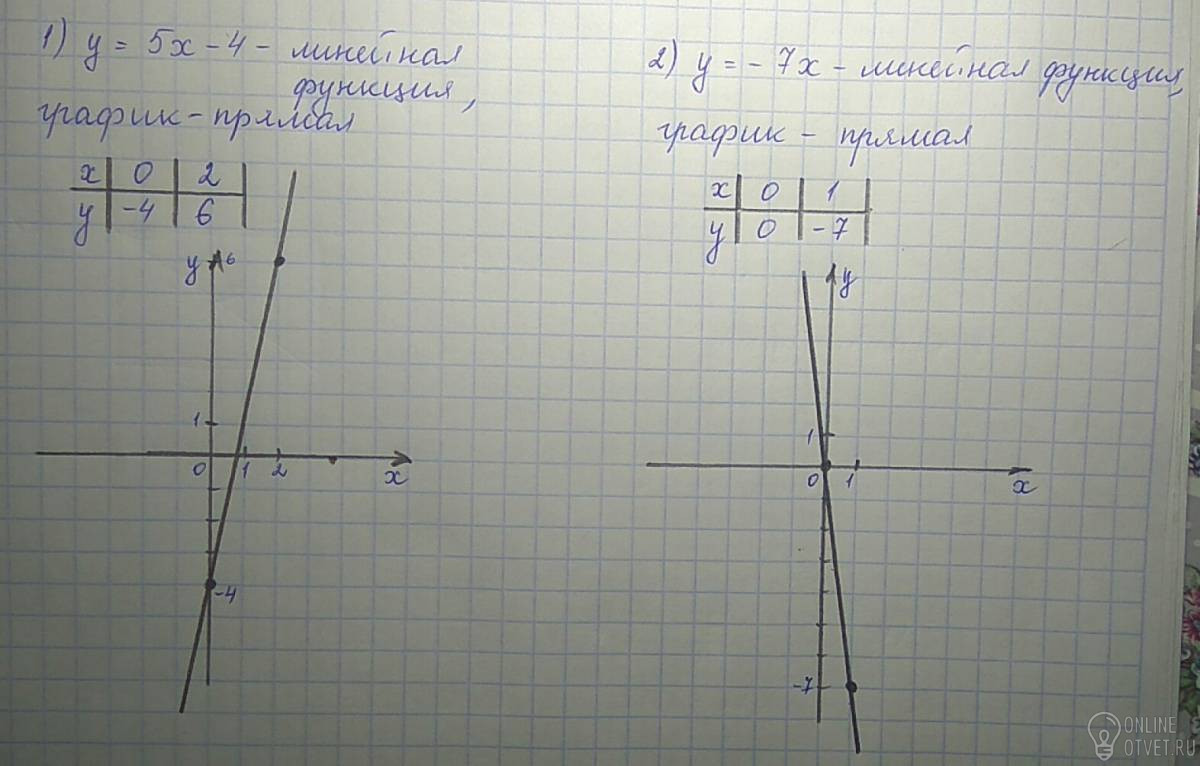 1) y = 5x - 4 - линейная
функция,
график - прямая
x 0 2
y -4 6
y 6
1
0 1 2 x
-4
2) y = - 7x - линейная функция,
график - прямая
x 0 1
y 0 -7
y
1
0 1 x
-7
ONLINE
OTVET.RU